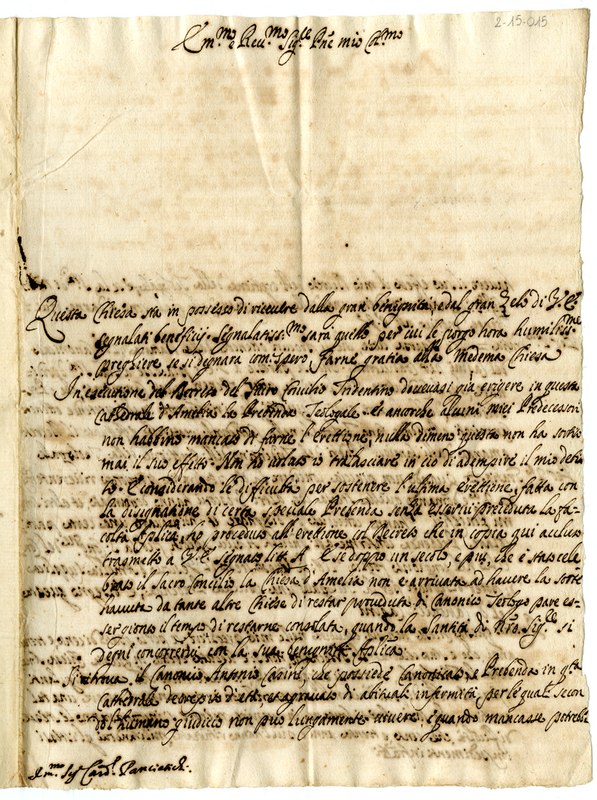 2-15-015
Em.mo e Reu.mo Sig.re Pne mio Col.mo
Questa Chiesa stà in possesso di riceuere dalla gran benignità, e dal gran Zelo di V. E.
segnalati beneficij. Segnalatiss.mo sarà quello per cui le porgo hora humiliss.me
preghiere, se si degnarà com'spero, farne gratia alla medema Chiesa
In esecutione del Decreto del Sacro Concilio Tridentino doueuasi già erigere in questa
Cathedrale d'Amelia la Prebenda Teologale. et ancorche alcuni miei Predecessori
non habbino mancato di farne l'erettione, nulla dimeno questa non ha sortito
mai il suo effetto. Non hò uoluto io tralasciare in ciò di adempire il mio debi-
to. E considerando le difficultà per sostenere l'ultima erettione, fatta con
la dissignatione di certa speciale Prebenda senza esserui preceduta la fa-
coltà Aplica, hò proceduto all'erettione col Decreto che in copia qui acclusa
trasmetto a V. E. segnato litt. A. E se doppo un secolo, e più, che è stato cele
brato il Sacro Concilio la Chiesa d'Amelia non è arriuata ad hauere la sorte
hauuta da tante altre Chiese di restar proueduta di Canonico Teologo pare es-
ser gionto il tempo di restarne consolata, quando la Santità di Nro Sig.re si
degni concorrerui con la sua benignità Aplica.
Si ritroua il Canonico Antonio che possiede Canonicato, e Prebenda in q.ta
Cathedrale decrepito d'età, et aggrauato di abituali infermità per le quali secon
do l'humano giudicio non può lungamente uiuere, e quando mancasse potrebbe
Em.mo Sig.r Card.l Panciatichi